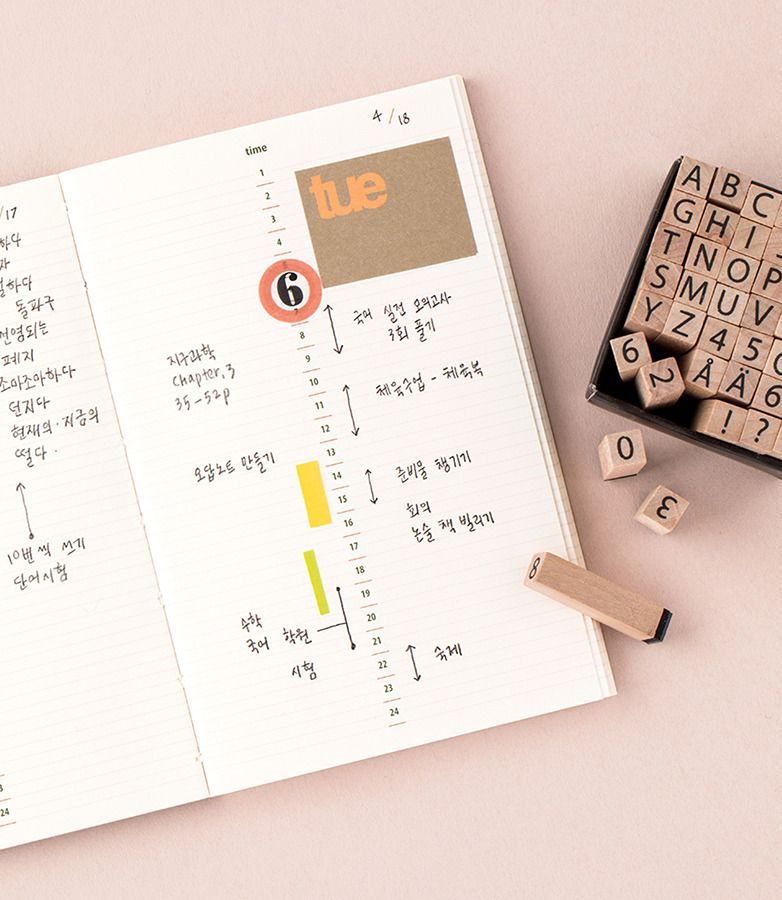 /17
하다
자
하다
돌파구
전염되는
페지
조마조마하다
던지다
현재의·지금의
떨다.
10번씩 쓰기
단어시험
3
24
4/18
time
1
2
3
4
5
6
7
8
9
10
11
12
13
14
15
16
17
18
19
20
21
22
23
24
tue
국어 실전 모의고사
3회 풀기
지구과학
chapter.3
35-52p
체육수업 - 체육복
오답노트 만들기
준비물 챙기기
회의
논술 책 빌리기
수학
국어 학원
시험
숙제
A B C
G H I
T N O P
S M U V
Y Z 4 5 0
6 2 Å Ä 6
! ?
0
3
8